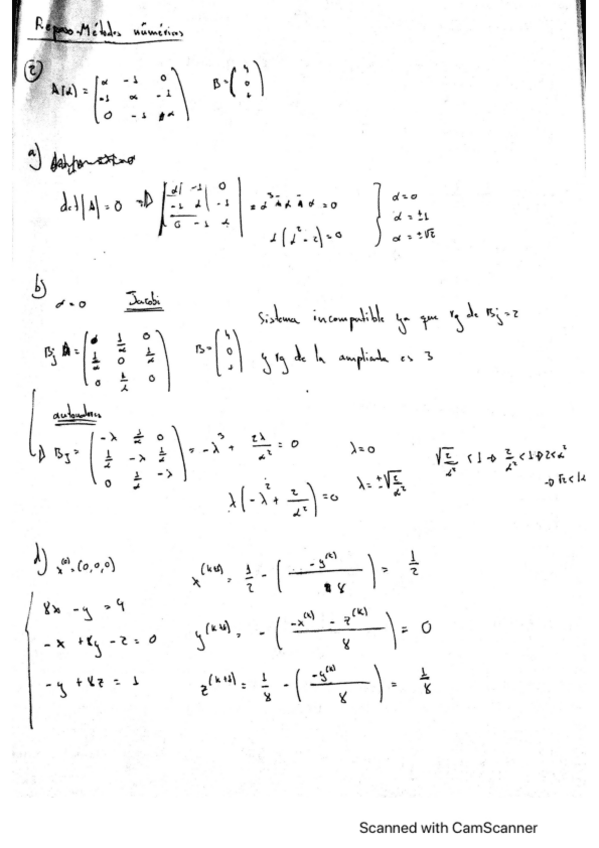 Repaso-Métodos numéricos
2
A(α) = ( α -1 0 ; -1 α -1 ; 0 -1 α ) B = ( 4 ; 0 ; 1 )
a)
det|A| = 0 ⇒ | α -1 0 ; -1 α -1 ; 0 -1 α | = α³ - α - α = 0
α(α² - 2) = 0
α = 0
α = ±1
α = ±√2
b)
α = 0 Jacobi
Bj = ( 0 1/α 0 ; 1/α 0 1/α ; 0 1/α 0 ) B = ( 4 ; 0 ; 1 )
Sistema incompatible ya que rg de Bj = 2
y rg de la ampliada es 3
autovalores
Bj = ( -λ 1/α 0 ; 1/α -λ 1/α ; 0 1/α -λ ) = -λ³ + 2λ/α² = 0
λ(-λ² + 2/α²) = 0
λ = 0
λ = ±√(2/α²)
√(2/α²) < 1 ⇒ 2/α² < 1 ⇒ 2 < α²
⇒ √2 < |α
d) x⁽⁰⁾ = (0,0,0)
8x - y = 4
-x + 8y - z = 0
-y + 8z = 1
x^(k+1) = 1/2 - ( -y^(k) / 8 ) = 1/2
y^(k+1) = - ( -x^(k) - z^(k) / 8 ) = 0
z^(k+1) = 1/8 - ( -y^(k) / 8 ) = 1/8
Scanned with CamScanner